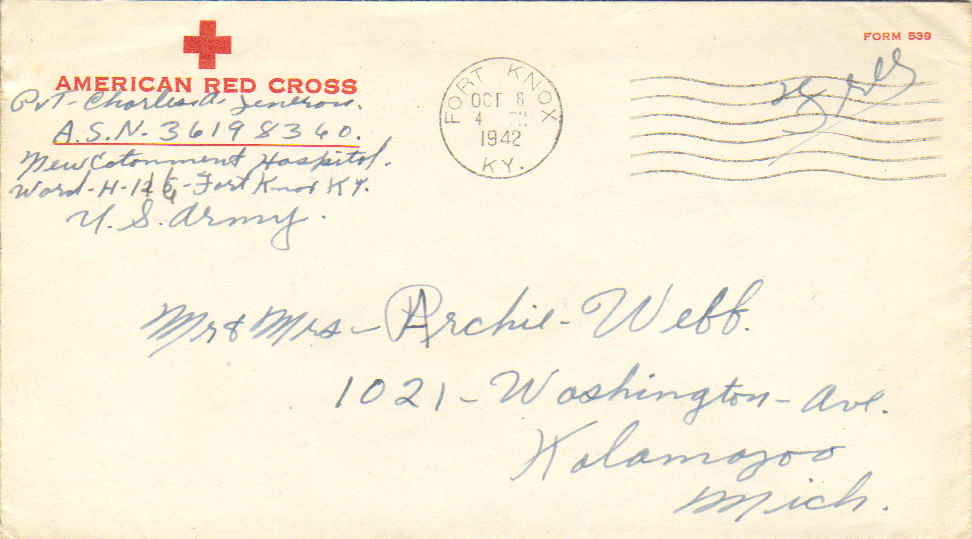 FORM 539
AMERICAN RED CROSS
Pvt - Charles A.
A.S.N. - 36198360.
New Cotonment Hospital.
Word - H - - Fort Knox KY.
U. S. Army.
FORT KNOX
OCT 8
4
1942
KY.
Mr & Mrs - Archie - Webb.
1021 - Washington - Ave.
Kalamazoo
Mich.